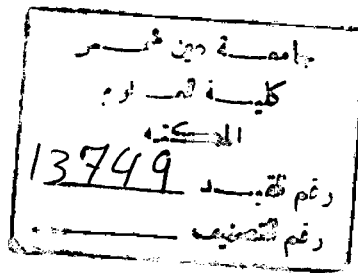 جامعة عين شمس
كلية العلوم
المكتبة
رقم القيد 13749
رقم التصنيف